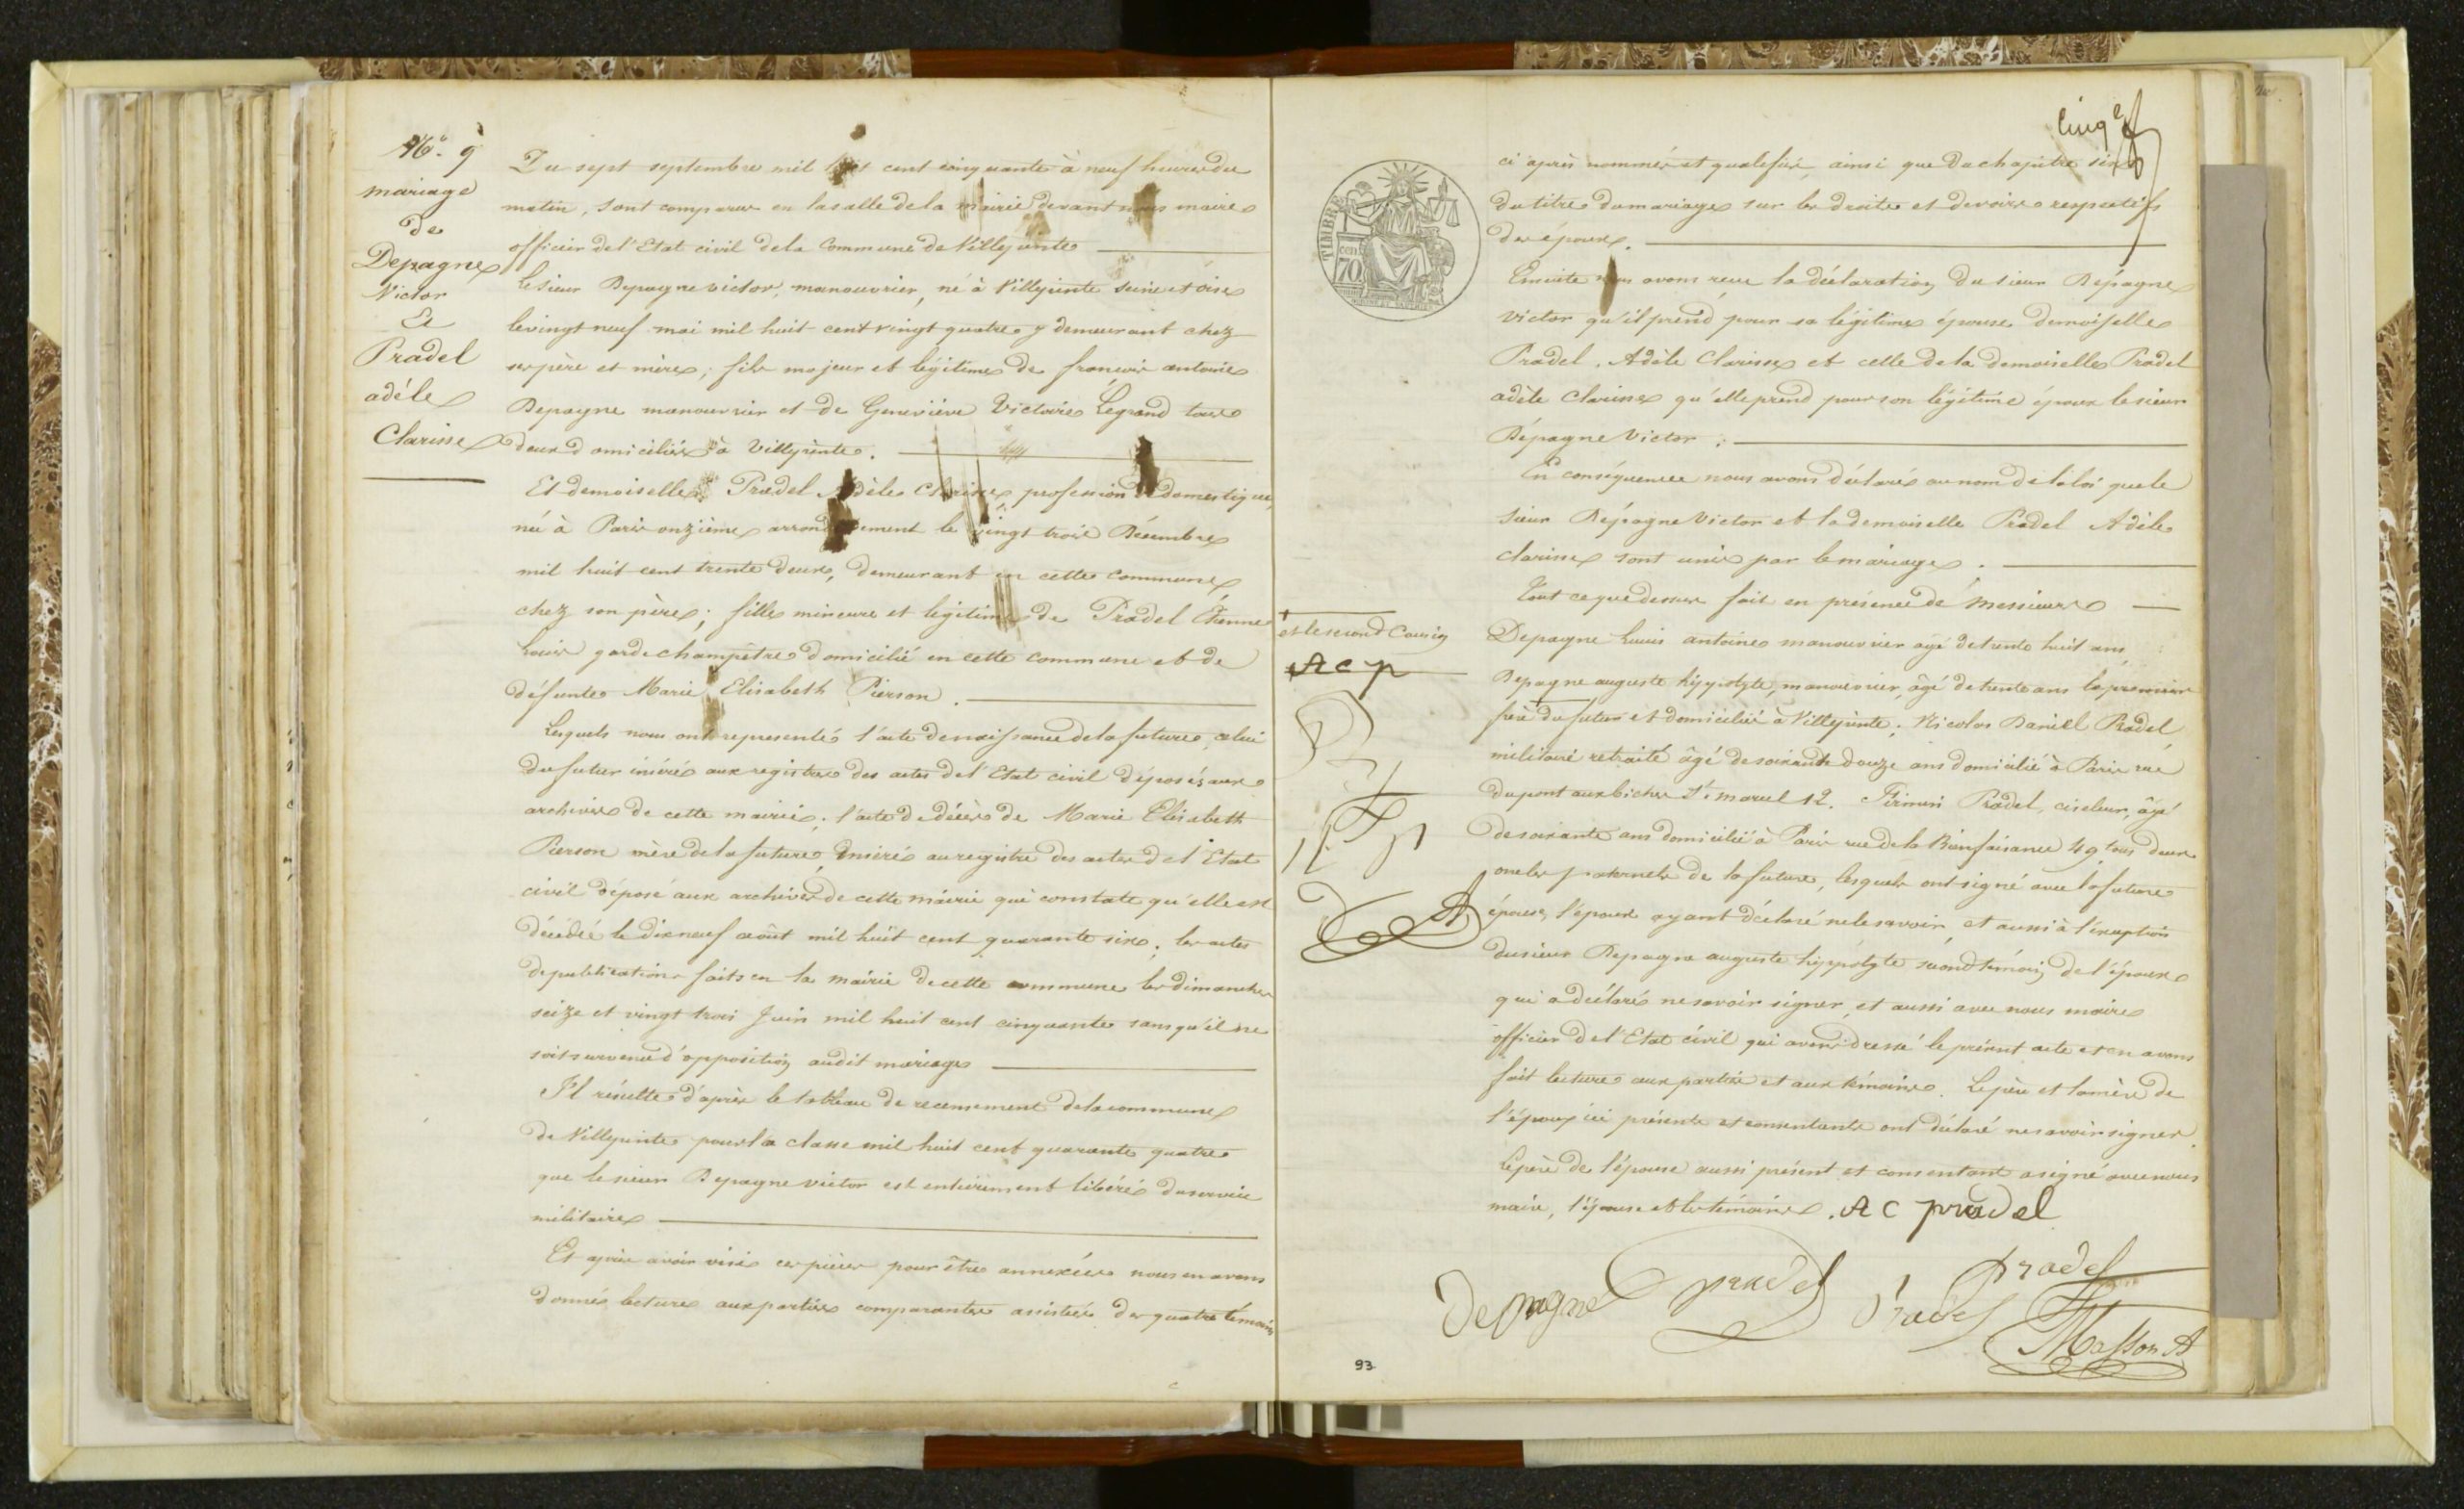 No. 9
mariage
de
Depagne
Victor
Et
Pradel
adèle
Clarisse
Du sept septembre mil huit cent cinquante à neuf heures du
matin, sont comparus en la salle de la mairie devant nous maire
officier de l'Etat civil de la Commune de Villepinte
Le sieur Depagne victor, manouvrier, né à Villepinte seine et oise
le vingt neuf mai mil huit cent vingt quatre y demeurant chez
ses père et mère, fils majeur et légitime de francois antoine
Depagne manouvrier et de Geneviève Victoire Legrand tous
deux domiciliés à Villepinte.
Et demoiselle Pradel Adèle Clarisse, profession de domestique,
née à Paris onzième arrondissement le vingt trois Décembre
mil huit cent trente deux, demeurant en cette commune
chez son père; fille mineure et legitime de Pradel Étienne
Louis garde champêtre domicilié en cette commune et de
défunte Marie Elisabeth Pierson.
Lesquels nous ont representés l'acte de naissance de la future, celui
du futur inséré aux registres des actes de l'Etat civil déposés aux
archives de cette mairie; l'acte de décès de Marie Elisabeth
Pierson mère de la future, inséré au registre des actes de l'Etat
civil déposé aux archives de cette mairie qui constate qu'elle est
décédée le dix neuf août mil huit cent quarante six; les actes
de publications faits en la mairie de cette commune les dimanches
seize et vingt trois Juin mil huit cent cinquante sans qu'il ne
soit survenu d'opposition audit mariage
Il résulte d'après le tableau de recensement de la commune
de Villepinte pour la classe mil huit cent quarante quatre
que le sieur Depagne victor est entièrement libéré du service
militaire
Et après avoir visé ces pièces pour être annexées nous en avons
donné lecture aux parties comparantes assistées des quatre témoins
cinq
TIMBRE
cen
70
ci après nommés et qualifiés, ainsi que du chapitre six
du titre du mariage sur les droits et devoirs respectifs
des époux.
Ensuite nous avons reçu la déclaration du sieur Dépagne
victor qu'il prend pour sa légitime épouse demoiselle
Pradel. Adèle Clarisse et celle de la demoiselle Pradel
adèle clarisse qu'elle prend pour son légitime époux le sieur
Dépagne Victor.
En conséquence nous avons déclaré au nom de la loi que le
sieur Dépagne Victor et la demoiselle Pradel Adèle
clarisse sont unis par le mariage.
Tout ce que dessus fait en présence de Messieurs
Depagne Louis antoine manouvrier agé de trente huit ans
et le second Cousin
A c p
Depagne auguste hyppolyte, manouvrier, âgé de trente ans le premier
frère du futur et domicilié à Villepinte; Nicolas Daniel Pradel
militaire retraité âgé de soixante douze ans domicilié à Paris rue
du pont aux biches St. marcel 12. Pradel, ciseleur, âgé
de soixante ans domicilié à Paris rue de la Bienfaisance 49 tous deux
oncles paternels de la future, lesquels ont signé avec la future
épouse, l'époux ayant déclaré ne le savoir, et aussi à l'exception
du sieur Depagne auguste hyppolyte second témoin de l'époux
qui a déclaré ne savoir signer, et aussi avec nous maire
officier de l'Etat civil qui avons dressé le présent acte et en avons
fait lecture aux parties et aux témoins. Le père et la mère de
l'époux ici présents et consentants ont déclaré ne savoir signer.
Le père de l'épouse aussi présent et consentant a signé avec nous
maire, l'épouse et les témoins. A C pradel
Depagne pradel Pradel pradel
Masson A
93